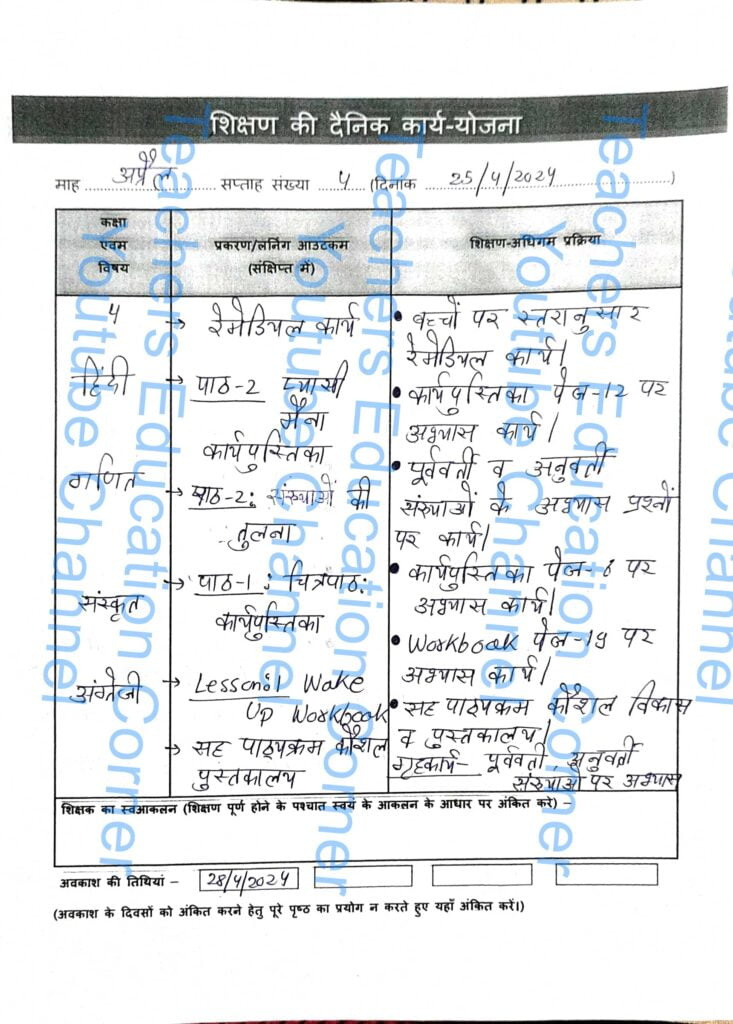 शिक्षण की दैनिक कार्य-योजना
माह अप्रैल सप्ताह संख्या 4 (दिनांक 25/4/2024)
कक्षा
एवम
विषय
प्रकरण/लर्निंग आउटकम
(संक्षिप्त में)
शिक्षण-अधिगम प्रक्रिया
4
→ रेमेडियल कार्य
हिंदी
→ पाठ-2 प्यासी
मैना
कार्यपुस्तिका
गणित
→ पाठ-2: संख्याओं की
तुलना
संस्कृत
→ पाठ-1: चित्रपाठ:
कार्यपुस्तिका
अंग्रेजी
→ Lesson:1 Wake
Up Workbook
→ सह पाठ्यक्रम कौशल
पुस्तकालय
• बच्चों पर स्तरानुसार
रेमेडियल कार्य।
• कार्यपुस्तिका पेज-12 पर
अभ्यास कार्य।
• पूर्ववर्ती व अनुवर्ती
संख्याओं के अभ्यास प्रश्नों
पर कार्य।
• कार्यपुस्तिका पेज-8 पर
अभ्यास कार्य।
• Workbook पेज-19 पर
अभ्यास कार्य।
• सह पाठ्यक्रम कौशल विकास
व पुस्तकालय।
गृहकार्य- पूर्ववर्ती, अनुवर्ती
संख्याओं पर अभ्यास
शिक्षक का स्वआकलन (शिक्षण पूर्ण होने के पश्चात स्वयं के आकलन के आधार पर अंकित करे) –
अवकाश की तिथियां – 28/4/2024
(अवकाश के दिवसों को अंकित करने हेतु पूरे पृष्ठ का प्रयोग न करते हुए यहाँ अंकित करें।)
Teachers Education Corner
Youtube Channel
Teachers Education Corner
Youtube Channel
Teachers Educa
Youtube Channel